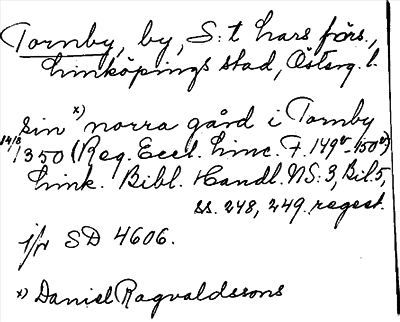 Tornby, by, S:t Lars förs.,
Linköpings stad, Österg. l.
sin x) norra gård i Tornby
14/8 1350 (Reg. Eccl. Linc. F. 149v-150v)
Link. Bibl. Handl. NS: 3, Bil. 5,
ss. 248, 249. regest.
jfr SD 4606.
x) Daniel Ragvaldssons